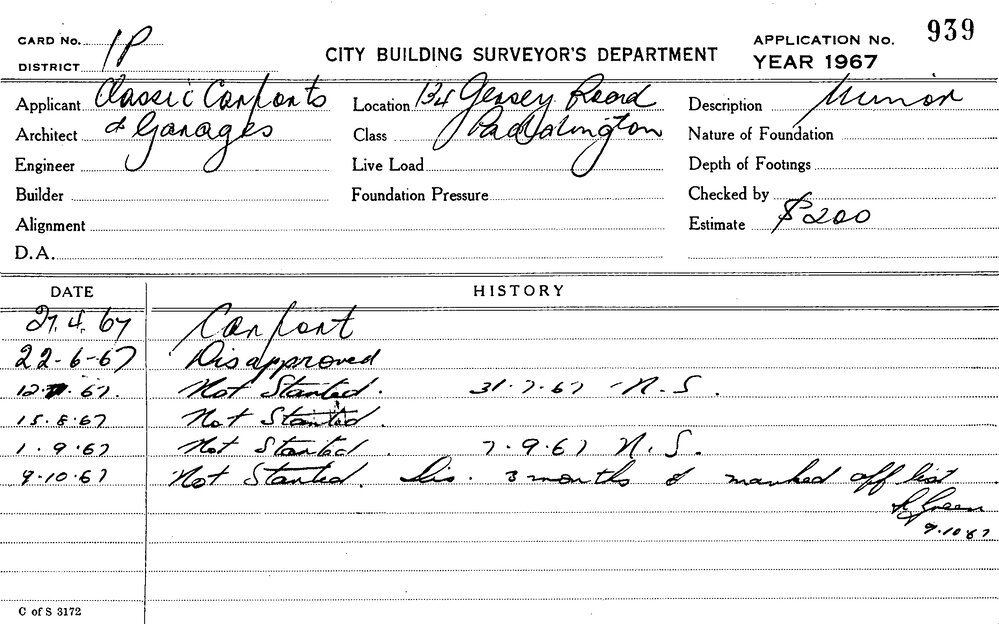 CARD No. 1P
DISTRICT
CITY BUILDING SURVEYOR'S DEPARTMENT
APPLICATION No. 939
YEAR 1967
Applicant Classic Carports Location 134 Jersey Road Description Minor
Architect & Garages Class Paddington Nature of Foundation
Engineer Live Load Depth of Footings
Builder Foundation Pressure Checked by
Alignment Estimate $200
D.A.
DATE HISTORY
27.4.67 Carport
22-6-67 Disapproved
12.7.67. Not Started. 31.7.67 - N.S.
15.8.67 Not Started.
1.9.67 Not Started. 7.9.67 N.S.
9.10.67 Not Started. Dis. 3 months & marked off list
Green
9.10.67
C of S 3172